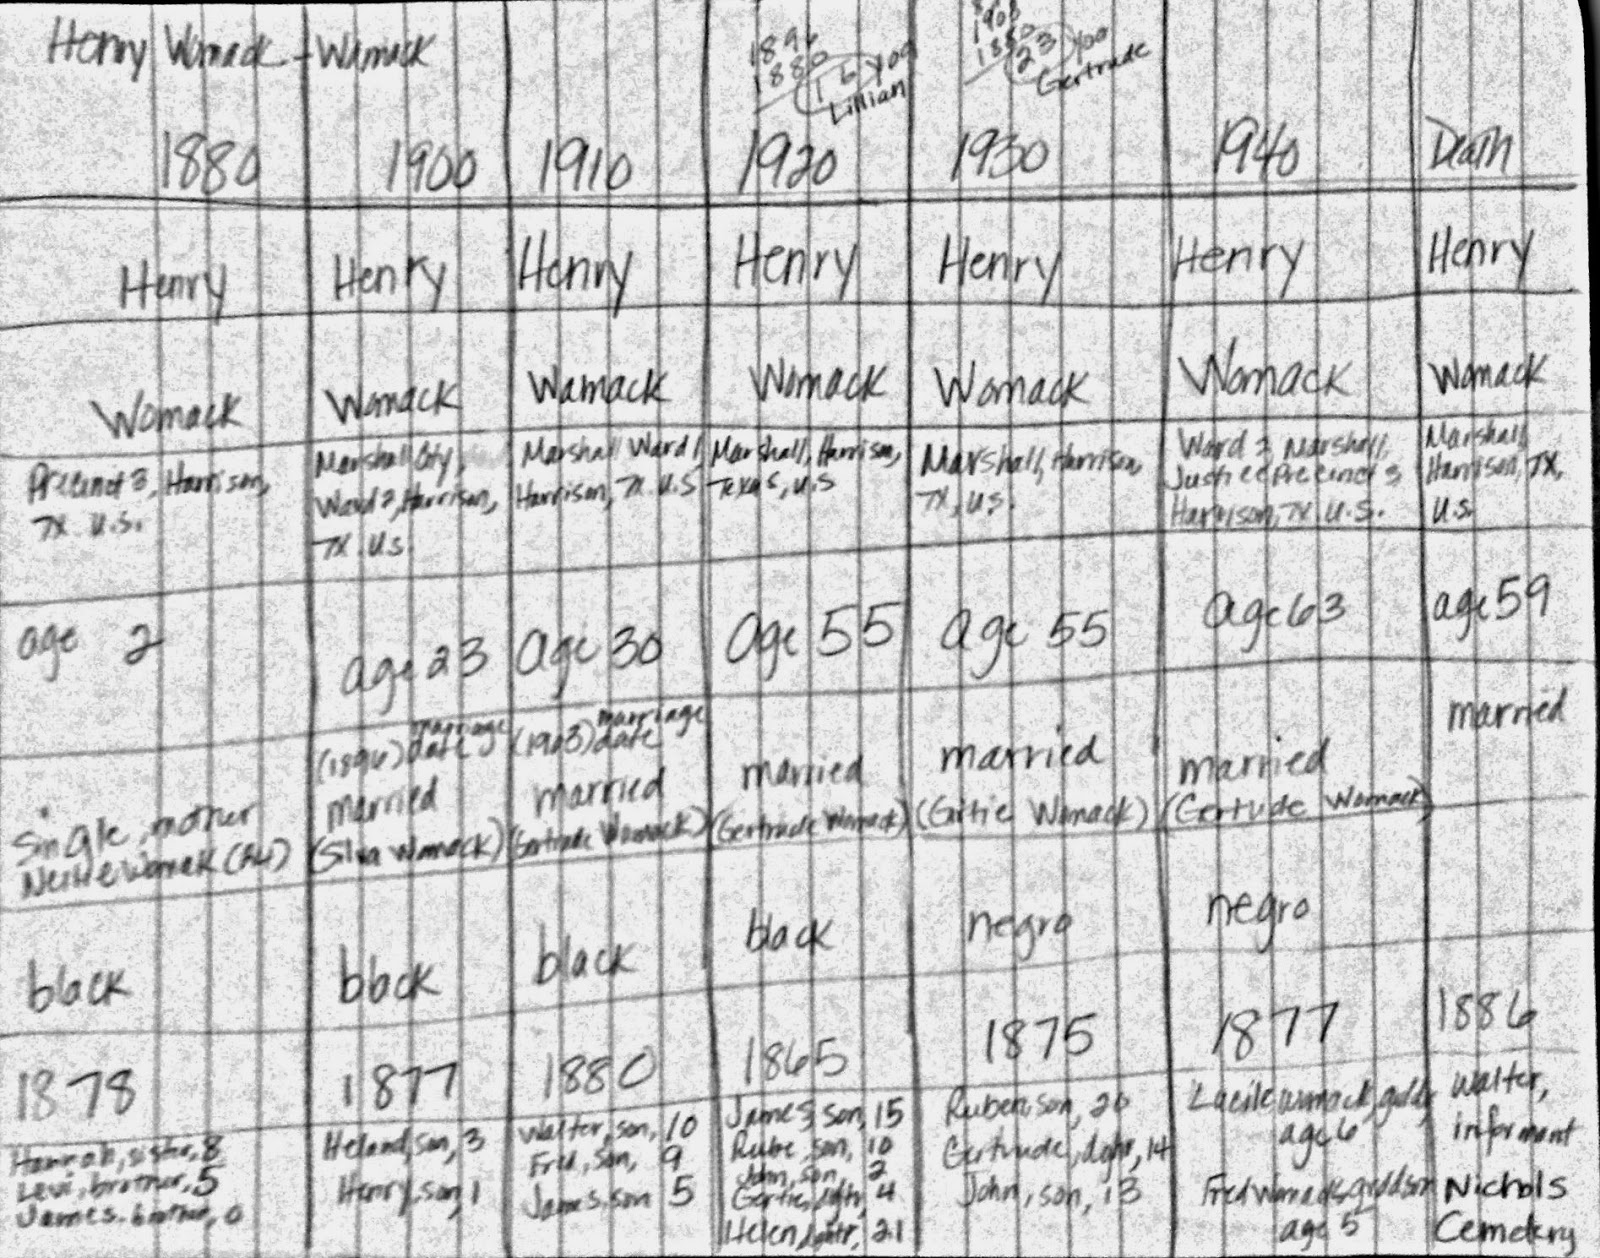 Henry Womack - Wamack
1896
1880
16 yoa
Lillian
1903
1880
23 yoa
Gertrude
1880 1900 1910 1920 1930 1940 Death
Henry Henry Henry Henry Henry Henry Henry
Womack Womack Wamack Womack Womack Womack Womack
Precinct 3, Harrison,
TX U.S.
Marshall City,
Ward 2, Harrison,
TX. U.S.
Marshall Ward 1,
Harrison, TX U.S
Marshall, Harrison,
Texas, U.S
Marshall, Harrison,
TX, U.S.
Ward 2, Marshall,
Justice Precinct 3
Harrison, TX U.S.
Marshall,
Harrison, TX,
U.S.
age 2 age 23 age 30 age 55 age 55 age 63 age 59
single, mother
Womack
(1896) marriage date
married
(Silva Womack)
(1903) marriage date
married
(Gertrude Womack)
married
(Gertrude Womack)
married
(Girtie Womack)
married
(Gertude Womack)
married
black black black black negro negro
1878 1877 1880 1865 1875 1877 1886
Hannah, sister, 8
Levi, brother, 5
James, brother, 0
Heland, son, 3
Henry, son, 1
Walter, son, 10
Fred, son, 9
James, son 5
James, son, 15
Rube, son, 10
John, son, 2
Gertie, dghtr, 4
Helen, dghtr, 21
Ruben, son, 20
Gertrude, dghtr, 14
John, son, 13
Lucile Womack,
age 6
Fred Womack,
age 5
Walter,
informant
Nichols
Cemetery